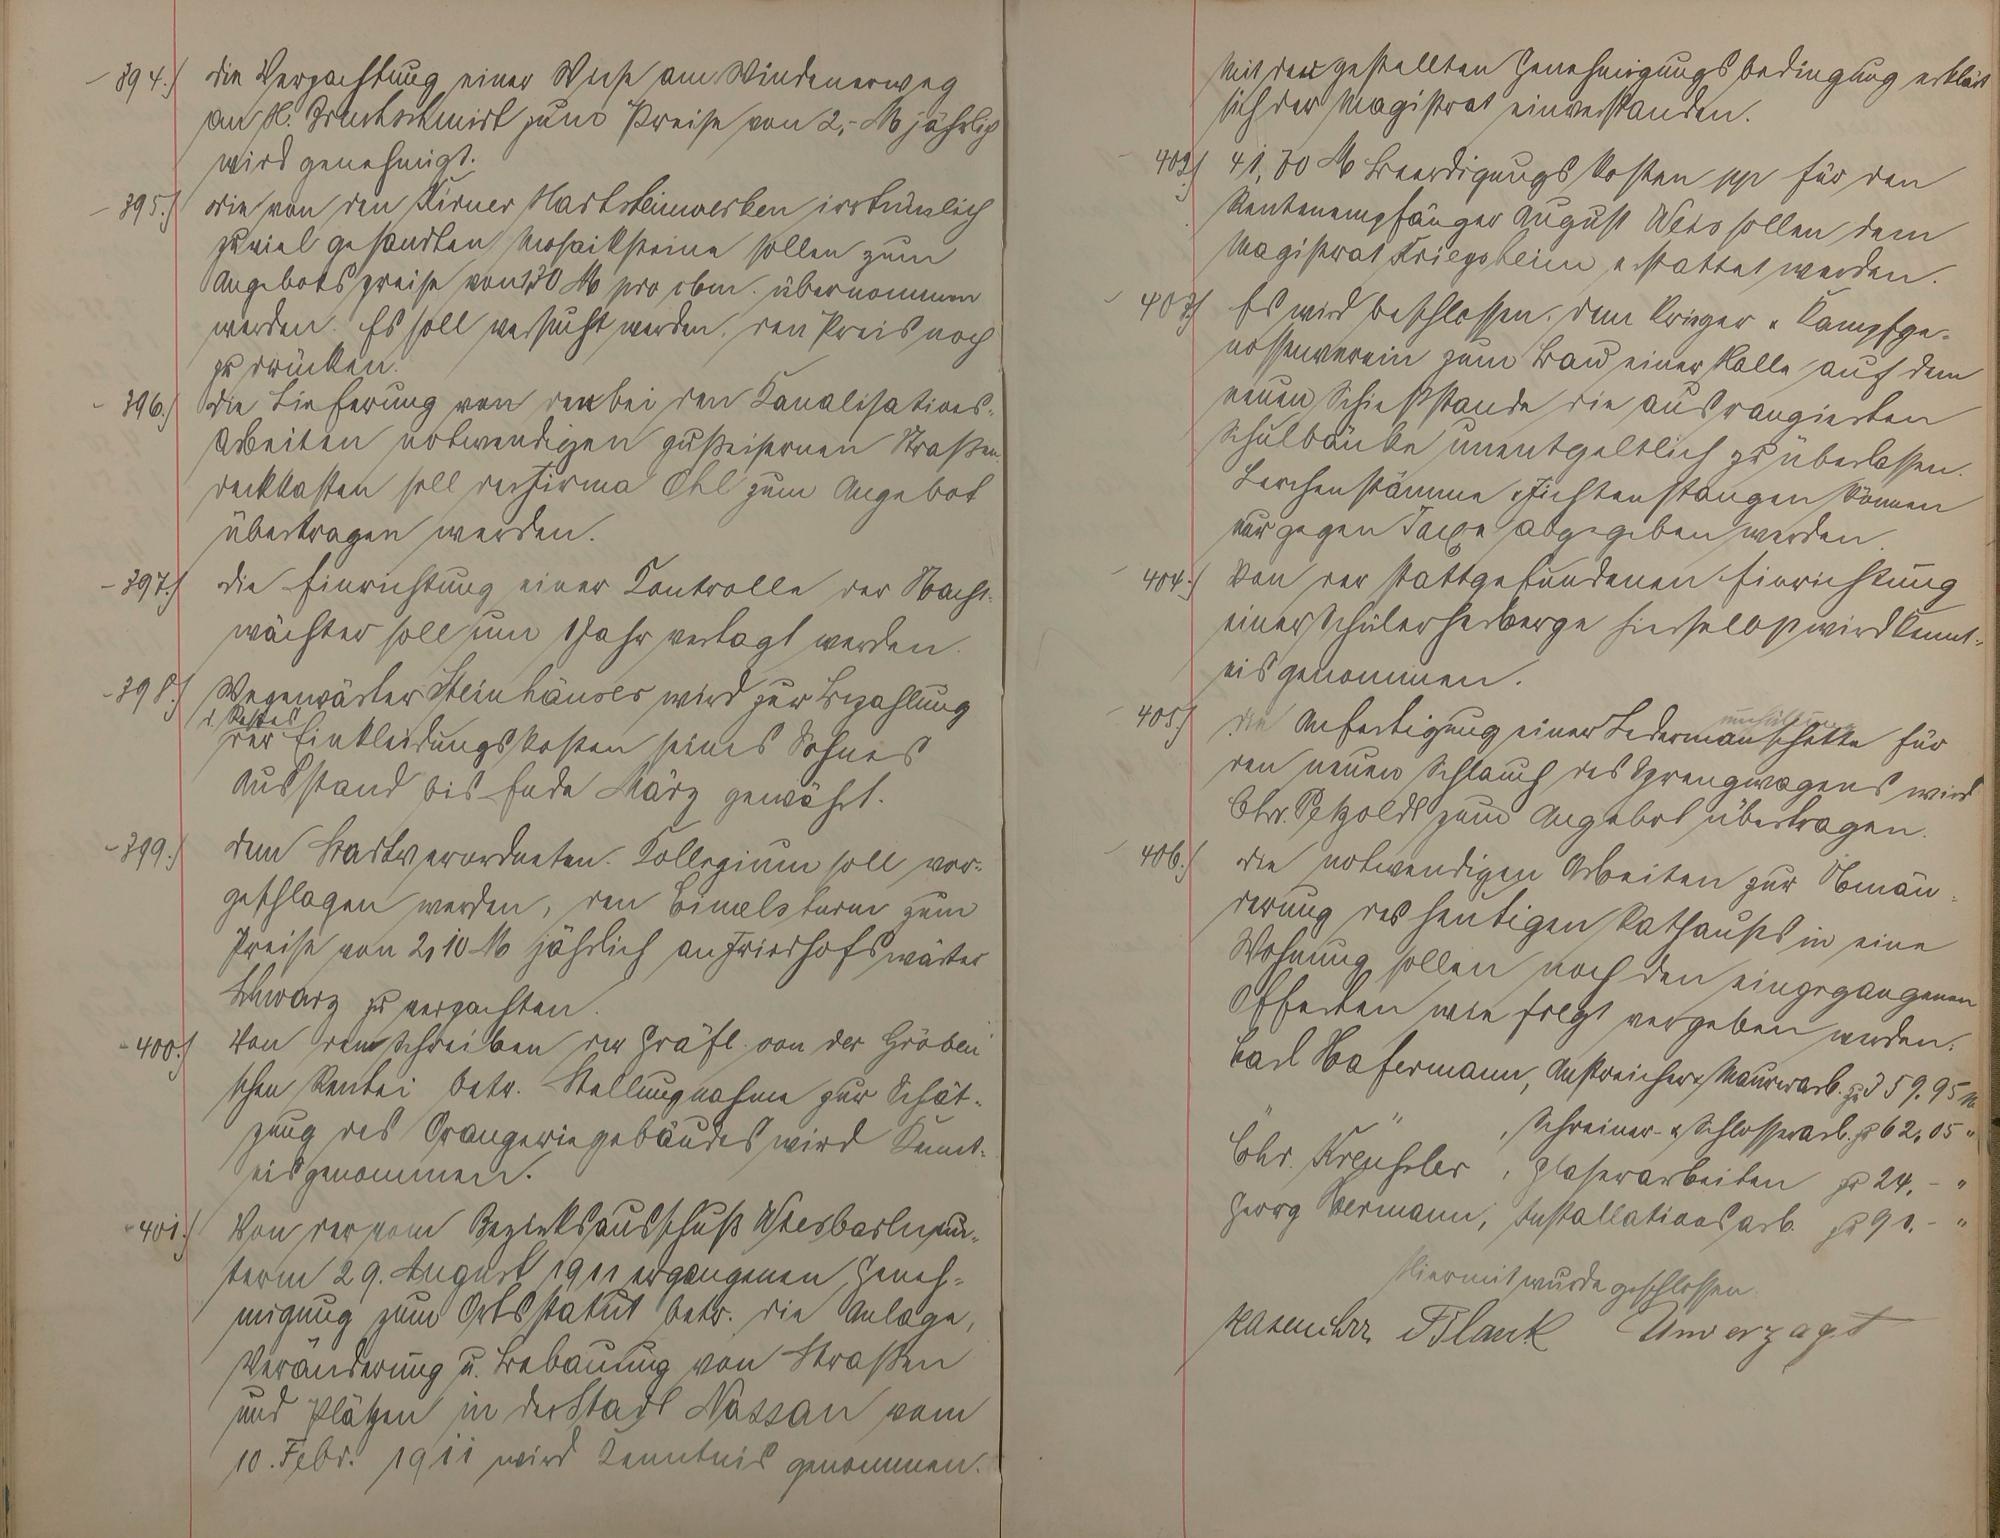 394.) Die Verpachtung einer Wiese am Windenerweg
an H. zum Preise von 2,- M jährlich
wird genehmigt.
395.) Die von den Kirner Hartsteinwerken irrtümlich
zuviel gesandten Mosaiksteine sollen zum
Angebotspreise von M pro cbm. übernommen
werden. Es soll versucht werden, den Preis noch
zu drücken.
396.) Die Lieferung von den bei den Kanalisations-
Arbeiten notwendigen gußeisernen Straßen
deckkasten soll der Firma Ohl zum Angebot
übertragen werden.
397.) Die Einrichtung einer Kontrolle der Nacht-
wächter soll um 1 Jahr vertagt werden.
398.) Wegewärter Steinhäuser wird zur Bezahlung
d. Restes
der Einkleidungskosten seines Sohnes
Ausstand bis Ende März gewährt.
399.) Dem Stadtverordneten-Kollegium soll vor-
geschlagen werden, den Eimelsturm zum
Preise von 2,10 M jährlich an Friedhofswärter
Schwarz zu verpachten.
400.) Von dem Schreiben der Gräfl. von der Gröben'
schen Rentei betr. Stellungnahme zur Schät-
zung des Orangeriegebäudes wird Kennt-
nis genommen.
401.) Von der vom Bezirksausschuß Wiesbaden un-
term 29. August 1911 ergangenen Geneh-
migung zum Ortsstatut betr. die Anlage,
Veränderung u. Bebauung von Straßen
und Plätzen in der Stadt Nassau vom
10. Febr. 1911 wird Kenntnis genommen.
Mit der gestellten Genehmigungsbedingung erklärt
sich der Magistrat einverstanden.
402.) 41,30 M Beerdigungskosten pp für den
Rentenempfänger August Weis sollen dem
Magistrat Kriegsheim erstattet werden.
403.) Es wird beschlossen, dem Krieger & Kampfge-
nossenverein zum Bau einer Halle auf dem
neuen Schießstande die ausrangierten
Schulbänke unentgeltlich zu überlassen.
Lerchenstämme & Fichtenstangen können
nur gegen Taxe abgegeben werden.
404.) Von der stattgefundenen Einrichtung
einer Schülerherberge hierselbst wird Kennt-
nis genommen.
405.) Die Anfertigung einer Ledermanschette für
den neuen Schlauch des Sprengwagens wird
Chr. Petzoldt zum Angebot übertragen.
406.) Die notwendigen Arbeiten zur Abmän-
derung des heutigen Rathauses in eine
Wohnung sollen nach den eingegangenen
Offerten wie folgt vergeben werden:
Carl Hafermann, Anstreicher & Maurerarb. zu 359.95 M
" " , Schreiner- & Schlosserarb. zu 62,05 "
Chr. Kreuseler, Glaserarbeiten zu 24.- "
Georg Hermann, Installationsarb. zu 90.- "
Hiermit wurde geschlossen.
Hasenclever Blank Unverzagt